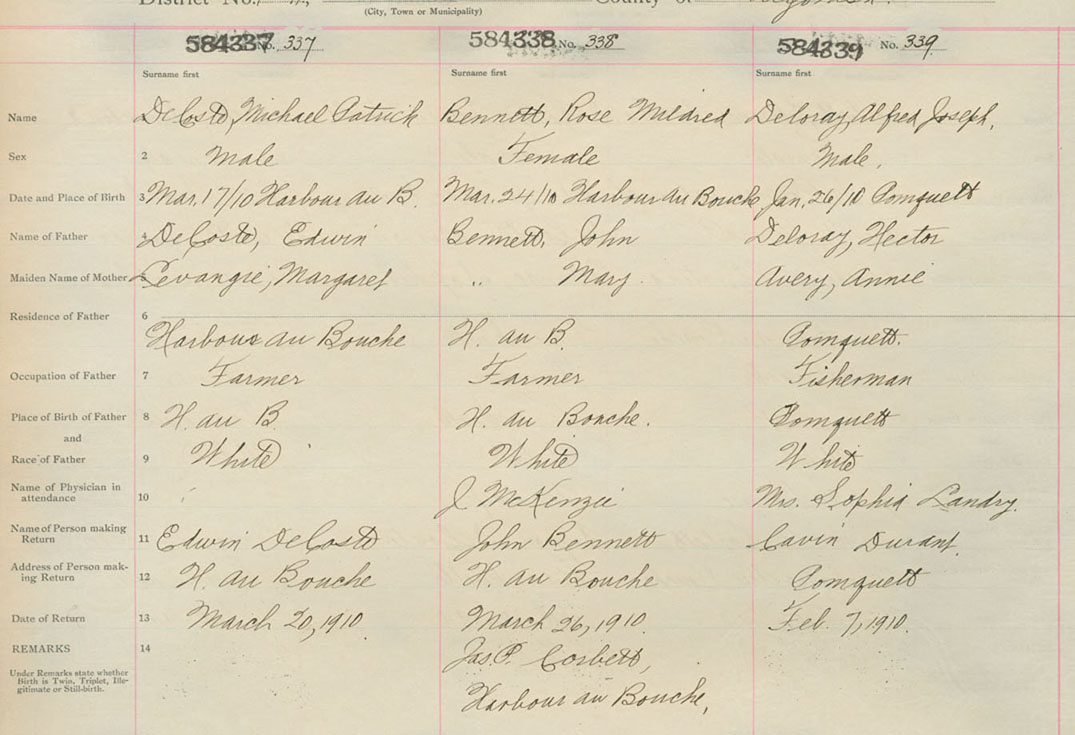 District No.
(City, Town or Municipality)
County of
584337 No. 337 584338 No. 338 584339 No. 339
Surname first Surname first Surname first
Name DeCoste, Michael Patrick Bennett, Rose Mildred Deloray, Alfred Joseph.
Sex 2 Male Female Male.
Date and Place of Birth 3 Mar. 17/10 Harbour au B. Mar. 24/10 Harbour au Bouche Jan. 26/10 Pomquett
Name of Father 4 DeCoste, Edwin Bennett, John Deloray, Hector
Maiden Name of Mother 5 Levangie, Margaret " Mary Avery, Annie
Residence of Father 6
Harbour au Bouche H. au B. Pomquett.
Occupation of Father 7 Farmer Farmer Fisherman
Place of Birth of Father 8 H. au B. H. au Bouche. Pomquett
and
Race of Father 9 White White White
Name of Physician in
attendance 10 J McKenzie Mrs. Sophia Landry.
Name of Person making
Return 11 Edwin DeCoste John Bennett Durant.
Address of Person mak-
ing Return 12 H. au Bouche H. au Bouche Pomquett
Date of Return 13 March 20, 1910 March 26, 1910. Feb. 7, 1910.
REMARKS 14 Jas. P. Corbett,
Under Remarks state whether
Birth is Twin, Triplet, Ille-
gitimate or Still-birth.
Harbour au Bouche,